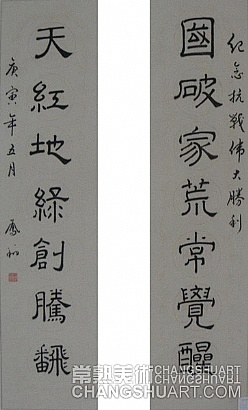 紀念抗戰偉大勝利
國破家荒常覺醒
天紅地綠創騰飜
庚寅年五月
常熟美術
CHANGSHUART.COM
常熟美術
CHANGSHUART.COM